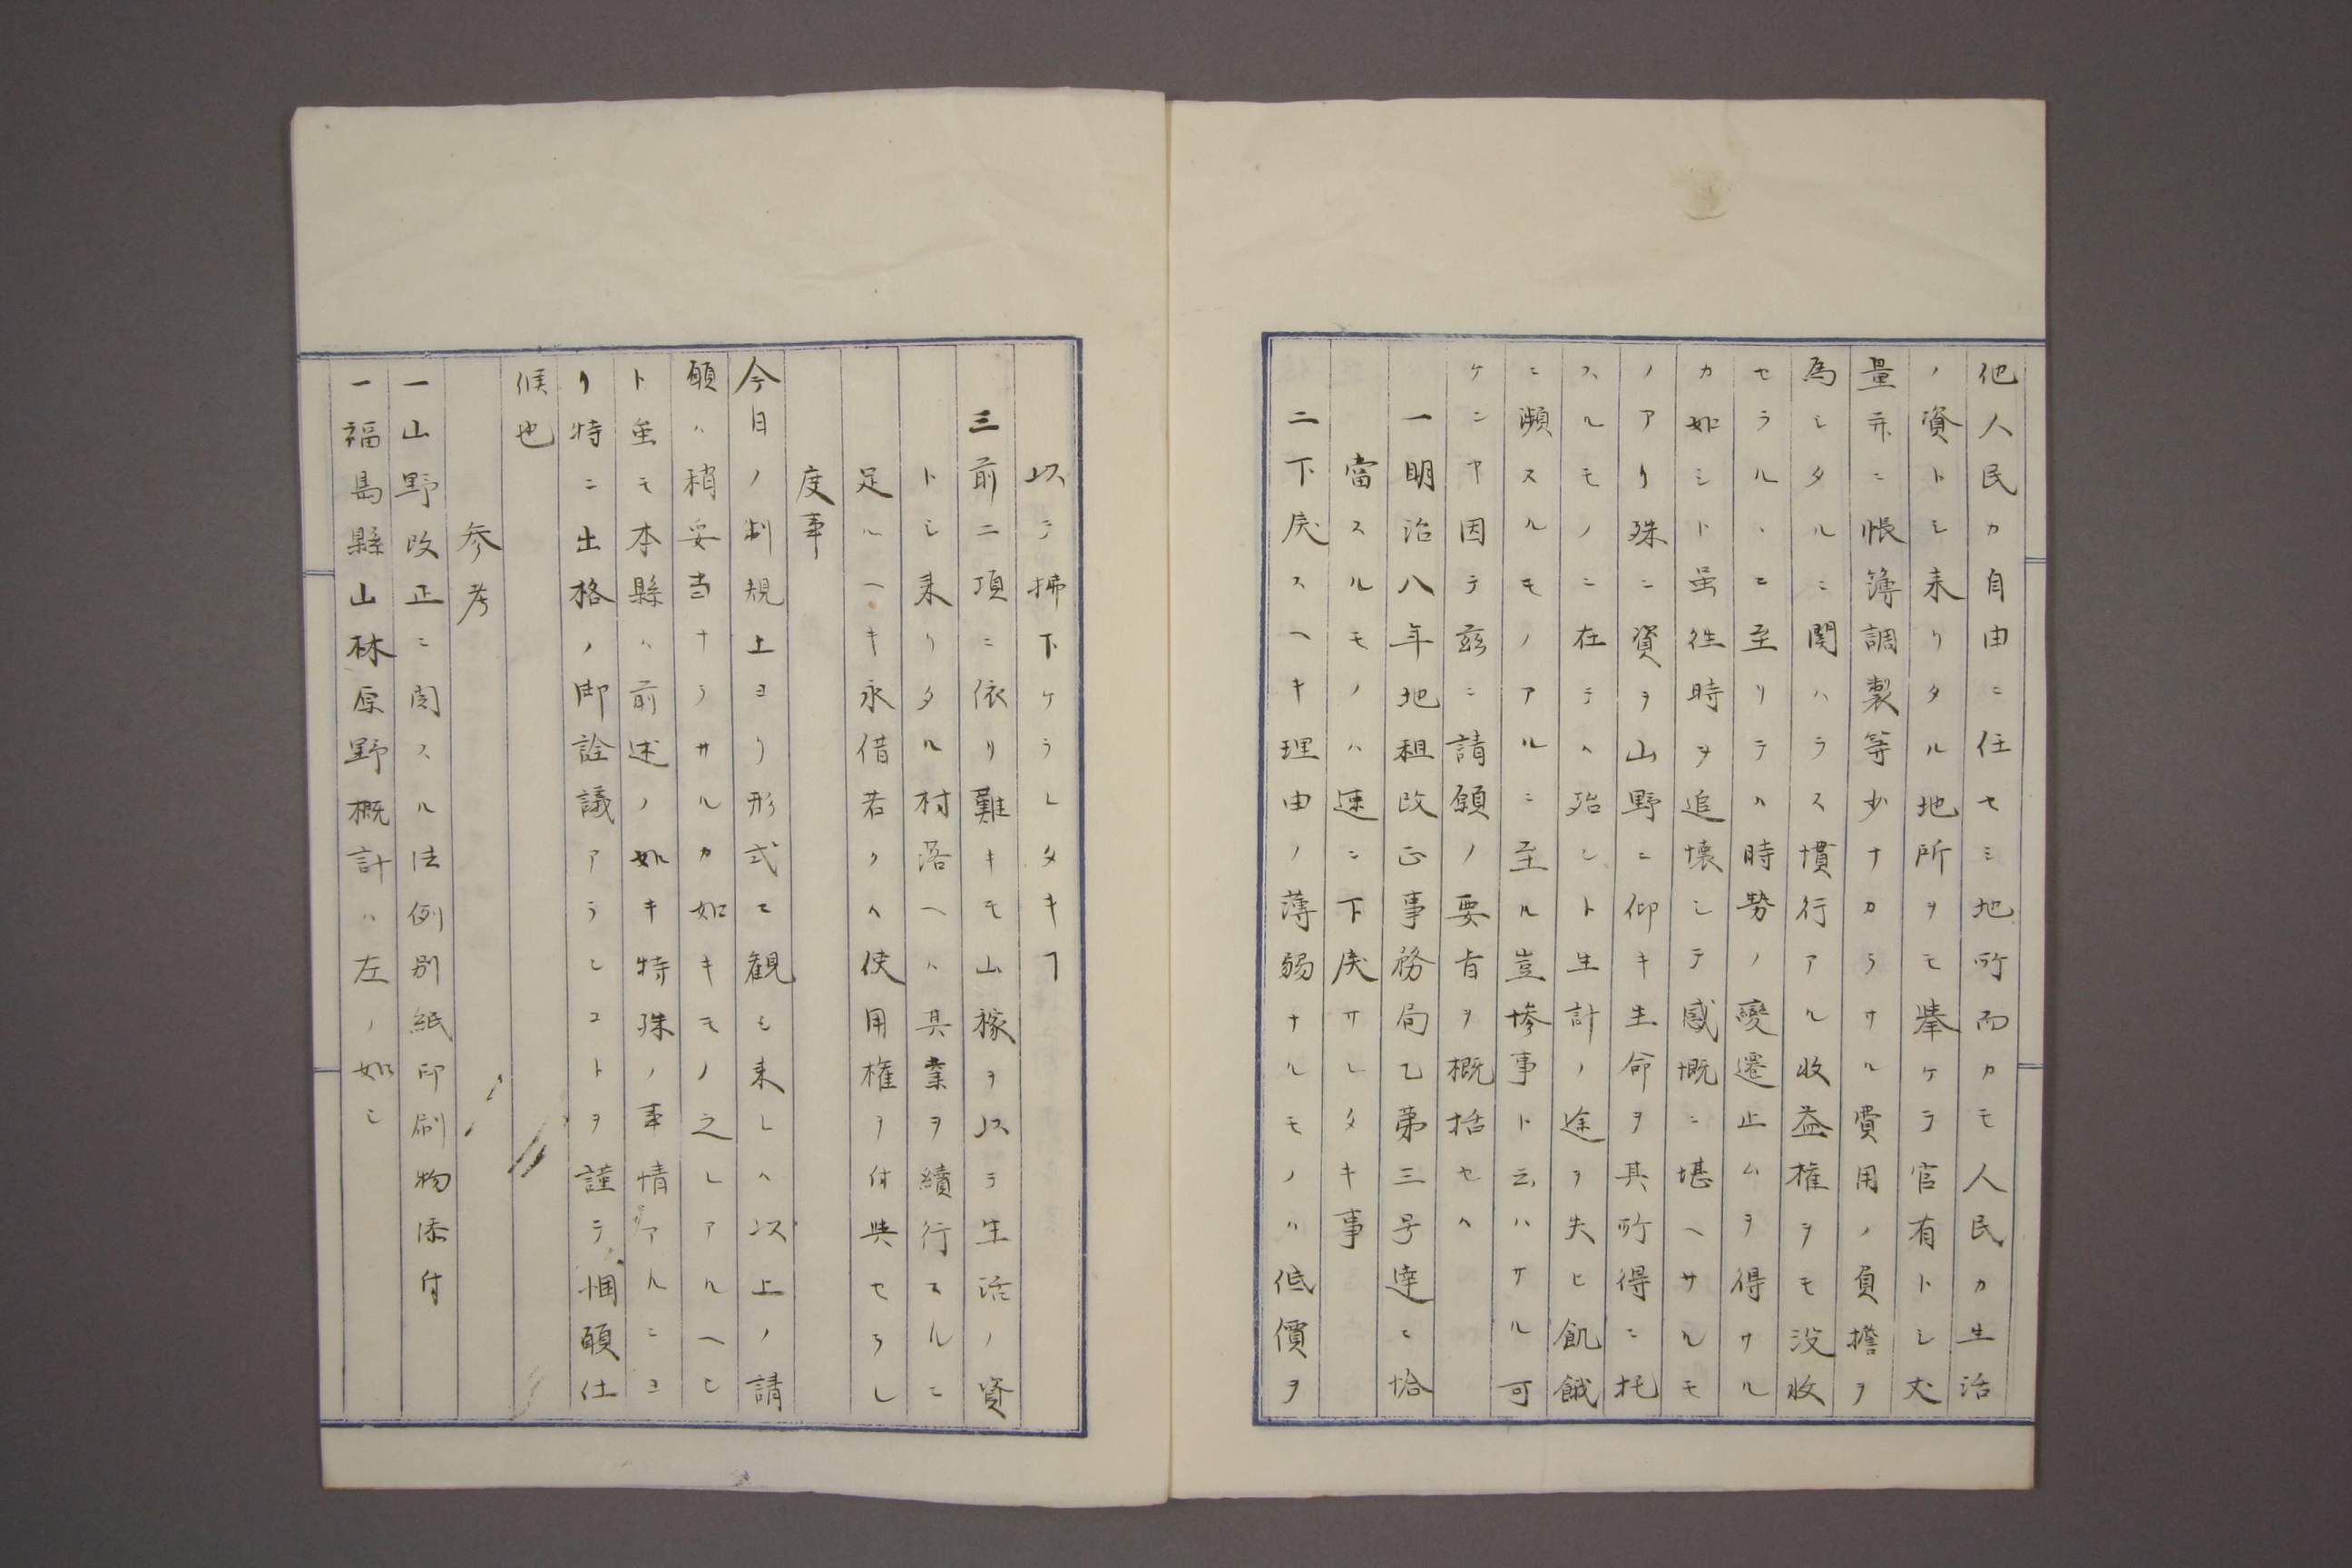 他人民カ自由ニ任セシ地所而カモ人民カ生活
ノ資トシ来リタル地所ヲモ挙ケテ官有トシ丈
量并ニ帳簿調製等少ナカラサル費用ノ負擔ヲ
為シタルニ関ハラス慣行アル收益権ヲモ没收
セラルヽニ至リテハ時勢ノ變遷止ムヲ得サル
カ如シト虽徃時ヲ追懐シテ感慨ニ堪ヘサルモ
ノアリ殊ニ資ヲ山野ニ仰キ生命ヲ其所得ニ托
スルモノニ在テハ殆ント生計ノ途ヲ失ヒ飢餓
ニ瀕スルモノアルニ至ル豈惨事ト云ハサル可
ケンヤ因テ茲ニ請願ノ要旨ヲ概括セハ
一明治八年地租改正事務局乙第三号達ニ恰
當スルモノハ速ニ下戻サレタキ事
二下戻スヘキ理由ノ薄弱ナルモノハ低價ヲ
以テ拂下ケラレタキヿ
三前二項ニ依リ難キモ山稼ヲ以テ生活ノ資
トシ来リタル村落ヘハ其業ヲ續行スルニ
足ルヘキ永借若クハ使用権ヲ付與セラレ
度事
今日ノ制規上ヨリ形式ニ観シ来レハ以上ノ請
願ハ稍妥当ナラサルカ如キモノ之レアルヘシ
ト虽モ本縣ハ前述ノ如キ特殊ノ事情アルニヨ
リ特ニ出格ノ御詮議アランコトヲ謹テ悃願仕
候也
参考
一山野改正ニ関スル法例別紙印刷物添付
一福島縣山林原野概計ハ左ノ如シ